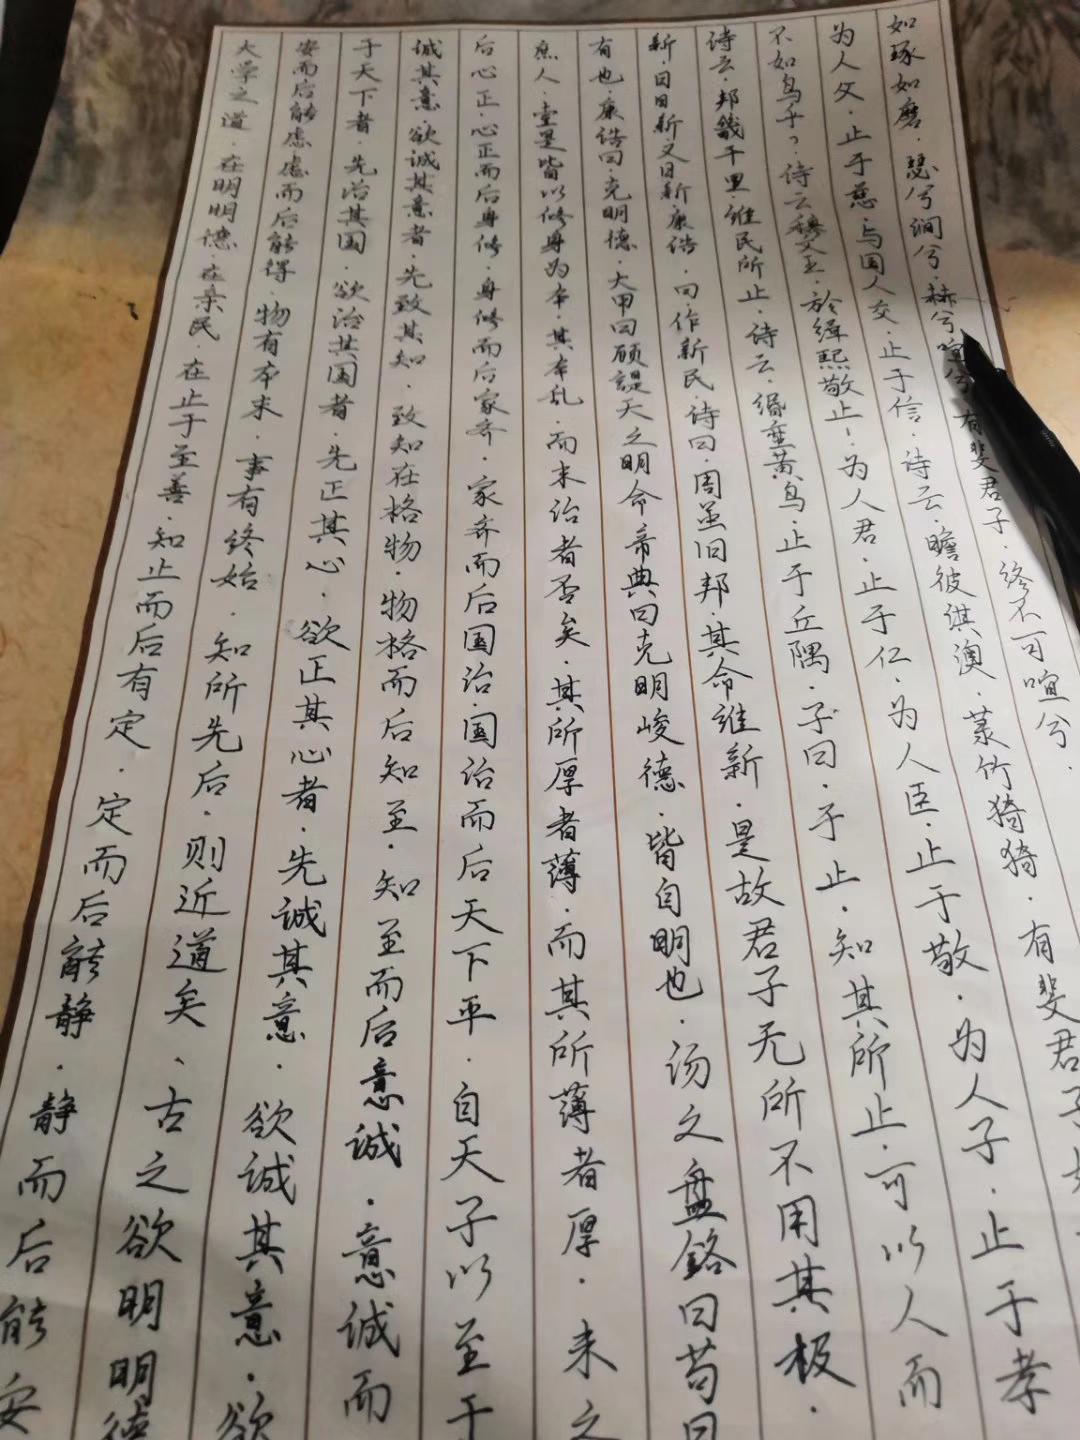 大学之道·在明明德·在亲民·在止于至善·知止而后有定·定而后能静·静而后能安
安而后能虑虑而后能得·物有本末·事有终始·知所先后·则近道矣、古之欲明明德
于天下者·先治其国·欲治其国者·先正其心·欲正其心者·先诚其意·欲诚其意·欲
诚其意·欲诚其意者·先致其知·致知在格物·物格而后知至·知至而后意诚·意诚而
后心正·心正而后身修·身修而后家齐·家齐而后国治·国治而后天下平·自天子以至于
庶人·壹是皆以修身为本·其本乱·而末治者否矣·其所厚者薄·而其所薄者厚·未之
有也·康诰曰·克明德·大甲曰顾諟天之明命帝典曰克明峻德·皆自明也·汤之盘铭曰苟曰
新·日日新又日新·康诰·曰作新民·诗曰·周虽旧邦·其命维新·是故君子无所不用其极·
诗云·邦畿千里·维民所止·诗云·缗蛮黄鸟·止于丘隅·子曰·于止·知其所止·可以人而
不如鸟乎？·诗云穆文王·於缉熙敬止·为人君·止于仁·为人臣·止于敬·为人子·止于孝
为人父·止于慈·与国人交·止于信·诗云·瞻彼淇澳·菉竹猗猗·有斐君子
如琢如磨·瑟兮涧兮·赫兮喧兮·有斐君子·终不可喧兮·